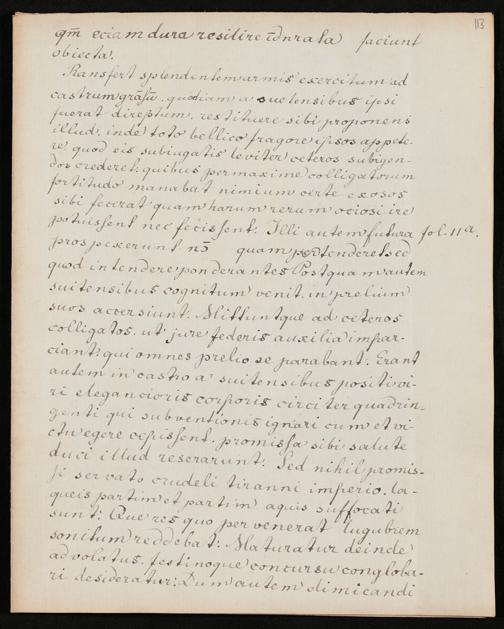 113
qm̄ eciam dura resilire c̄ōnrala faciunt
obiecta.
Transfert splendentem armis exercitum ad
castrum grāsū. quodiam a suetensibus ipsi
fuerat direptum, restituere sibi proponens
illud, inde toto bellico fragore ipsos appete-
re, quod eis subiugatis leviter ceteros subigen-
dos crederet: quibus permaxime colligatorum
fortitudo manabat nimium certe exosos
sibi fecerat quam harum rerum ociosi ire
potuissent nec fecissent. Illi autem futura fol. 11a.
prospexerunt nō quam protenderet sed
quod intendere ponderantes Postquam autem
suitensibus cognitum venit. in prelium
suos accersiunt. Mittuntque ad ceteros
colligatos. ut jure federis auxilia impar-
ciant: qui omnes prelio se parabant. Erant
autem in castro a suitensibus positi vi-
ri elegancioris corporis circiter quadrin-
genti qui subventionis ignari cum et vi-
ctu egere cepissent. promissa sibi salute
duci illud reserarunt. Sed nihil promis-
si servato crudeli tiranni imperio. la-
queis partim et partim aquis suffocati
sunt: Que res quo pervenerat lugubrem
sonitum reddebat: Maturatur deinde
advolatus. festinoque concursu congloba-
ri desideratur: Dum autem dimicandi